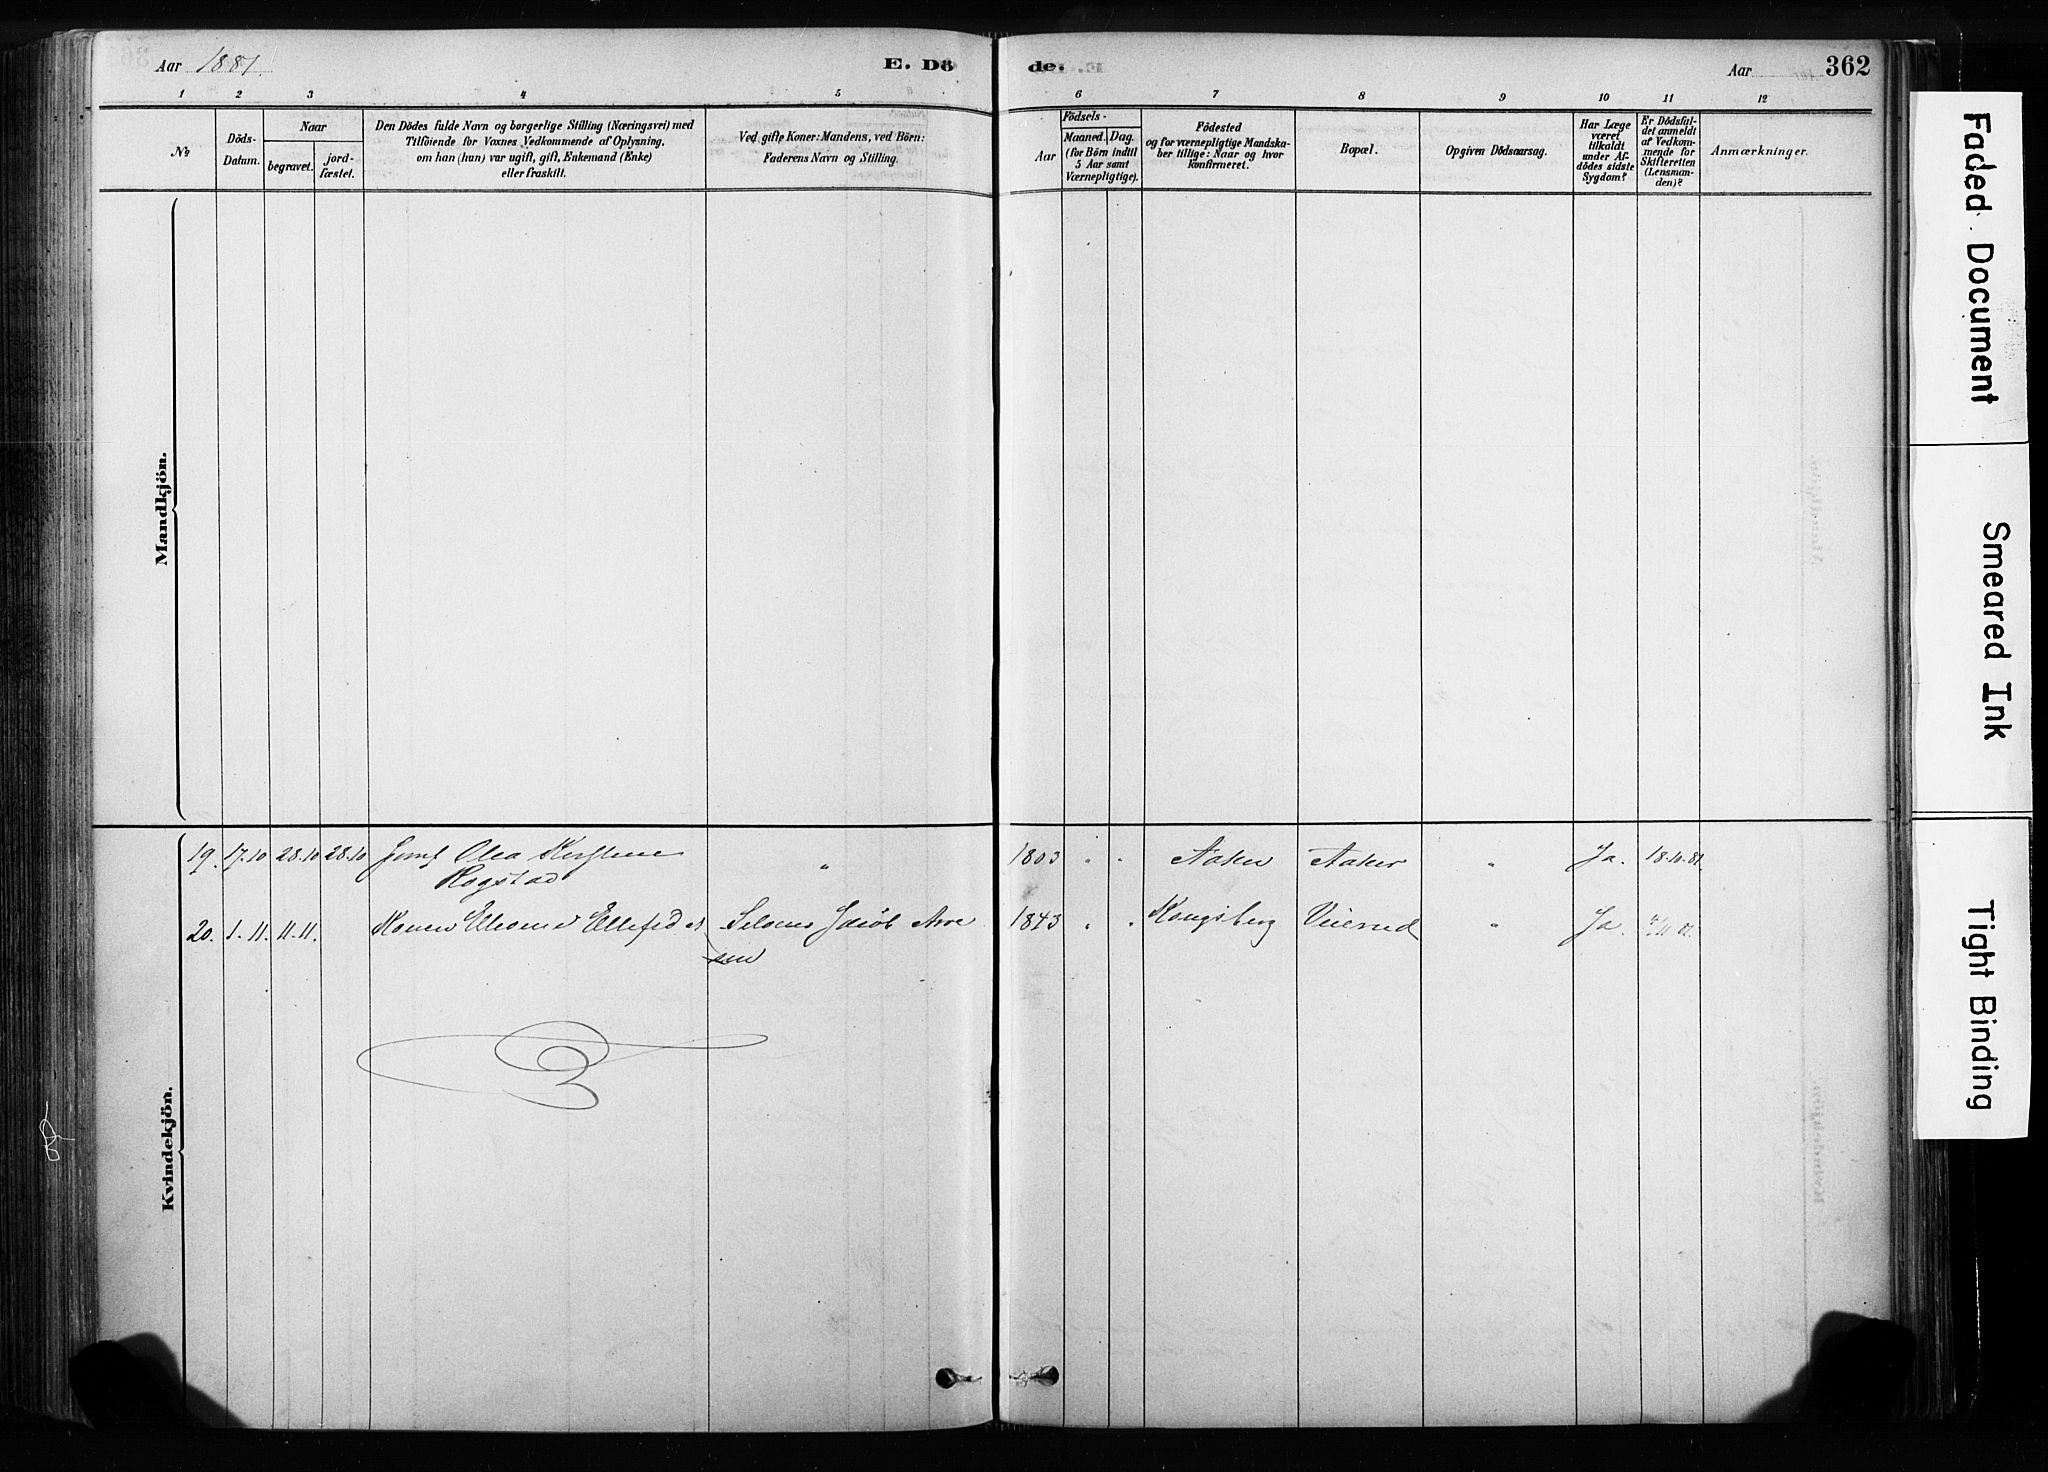 Aar 1881.
E. Dö
de.
Aar
362
1 2 3 4 5 6 7 8 9 10 11 12
No
Döds-
Datum.
Naar
begravet.
jord-
fæstet.
Den Dödes fulde Navn og borgerlige Stilling (Næringsvei) med
Tilföiende for Voxnes Vedkommende af Oplysning,
om han (hun) var ugift, gift, Enkemand (Enke)
eller fraskilt.
Ved gifte Koner: Mandens, ved Börn:
Faderens Navn og Stilling.
Födsels-
Aar
Maaned.
Dag.
(for Börn indtil
5 Aar samt
Værnepligtige).
Födested
og for værnepligtige Mandska-
ber tillige: Naar og hvor
konfirmeret.
Bopæl.
Opgiven Dödsaarsag.
Har Læge
været
tilkaldt
under Af-
dödes sidste
Sygdom?
Er Dödsfal-
det anmeldt
af Vedkom-
mende for
Skifteretten
(Lensman-
den)?
Anmærkninger.
Mandkjön.
Kvindekjön.
19. 17.10 28.10 28.10 Jomf Olea Kirstene " 1803 " " Aaker Aaker " Ja. 18.10.81.
Rogstad
20. 1.11. 11.11. Konen Elleonne Ellefsd. Jacob 1843 " " Kongsberg Veierud " Ja
sen
Faded Document
Smeared Ink
Tight Binding